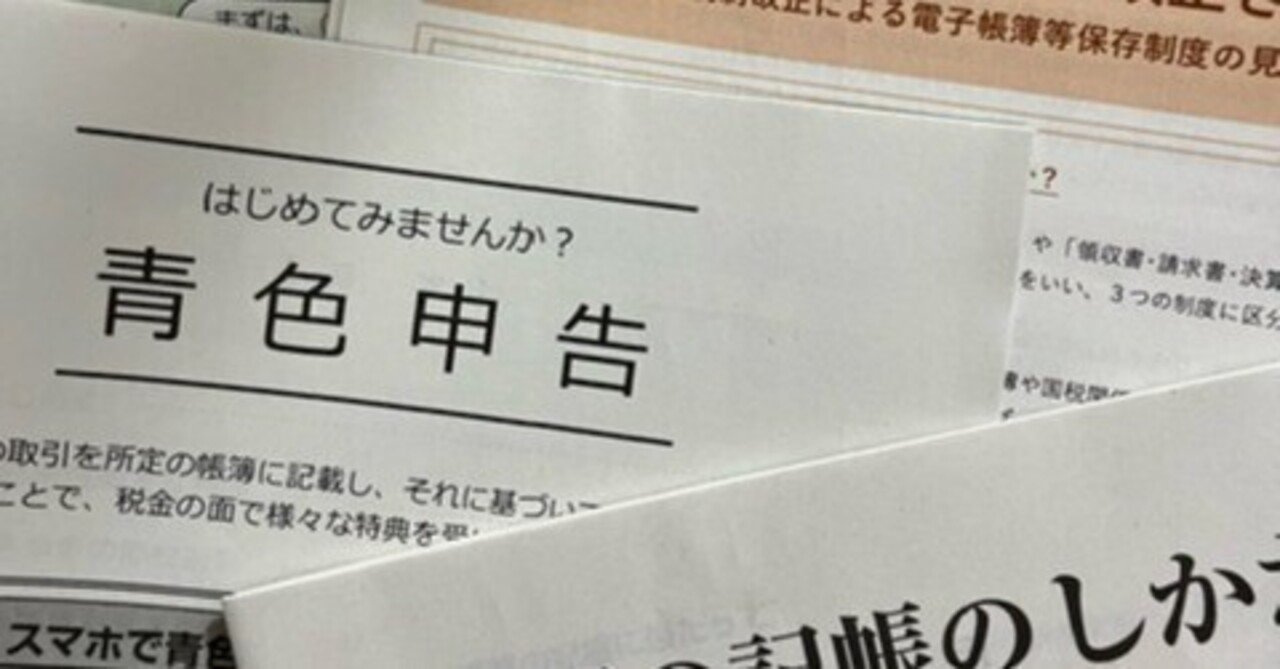 まずは、
改正による電子帳簿等保存制度の見
はじめてみませんか?
青色申告
の取引を所定の帳簿に記載し、それに基づいて
ことで、税金の面で様々な特典を受
スマホで青色
・?
や「領収書・請求書・決算
をいい、3つの制度に区分
書や国税関係
の記帳のしかた